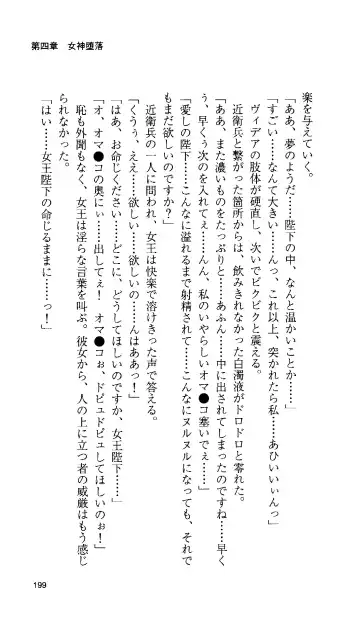 第四章　女神堕落
楽を与えていく。
「ああ、夢のようだ……陛下の中、なんと温かいことか……」
「すごい……なんて大きい……んっ、これ以上、突かれたら私……あひいぃぃんっ」
ヴィデアの肢体が硬直し、次いでビクビクと震える。
近衛兵と繋がった箇所からは、飲みきれなかった白濁液がドロドロと零れた。
「ああ、また濃いものをたっぷりと……あふん……中に出されてしまったのですね……早く
ぅ、早くぅ次のを入れてぇ……んん、私のいやらしいオマ●コ塞いでぇ……」
「愛しの陛下……こんなに溢れるまで射精されて……こんなにヌルヌルになっても、それで
もまだ欲しいのですか？」
近衛兵の一人に問われ、女王は快楽で溶けきった声で答える。
「くうぅ、ええ……欲しい……欲しいの……んはああっ！」
「はあ、お命じください……どこに、どうしてほしいのですか、女王陛下……」
「オ、オマ●コの奥にぃ……出してぇ！　オマ●コぉ、ドピュドピュしてほしいのぉ！」
恥も外聞もなく、女王は淫らな言葉を叫ぶ。彼女から、人の上に立つ者の威厳はもう感じ
られなかった。
「はい……女王陛下の命じるままに……っ！」
199